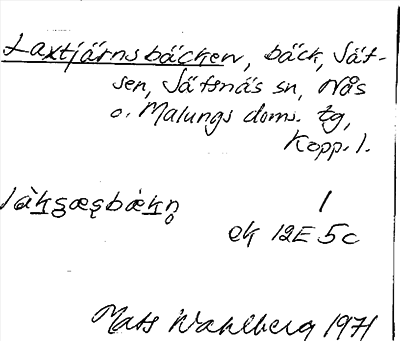 Laxtjärnsbäcken, bäck, Sät-
sen, Sätsnäs sn, Nås
o. Malungs doms. tg,
Kopp. l.
làksæsbækn̥ 1
ek 12E 5c
Mats Wahlberg 1971